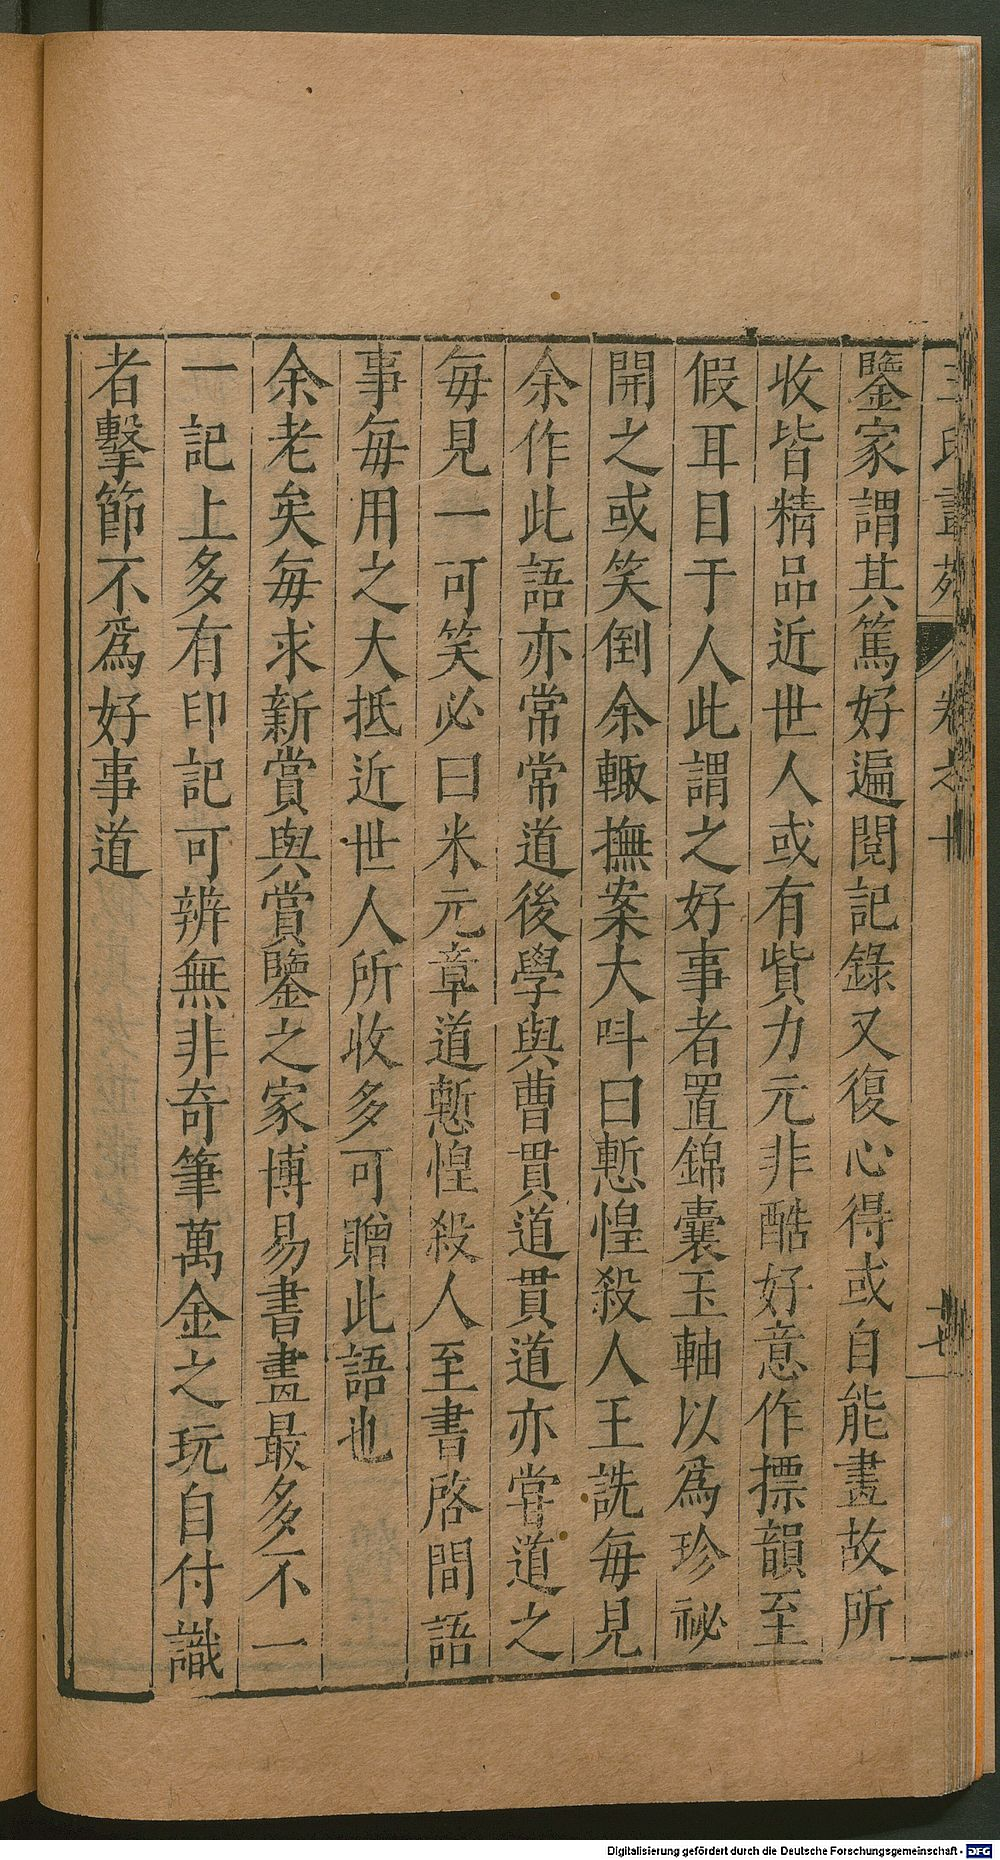 鑒家謂其篤好遍閱記錄又復心得或自能畫故所
收皆精品近世人或有貲力元非酷好意作摽韻至
假耳目于人此謂之好事者置錦囊玉軸以為珍祕
開之或笑倒余輙撫案大呌曰慙惶殺人王詵每見
余作此語亦常常道後學與曹貫道貫道亦嘗道之
每見一可笑必曰米元章道慙惶殺人至書啓間語
事每用之大抵近世人所收多可贈此語也
余老矣每求新賞與賞鑒之家博易書畫最多不一
一記上多有印記可辨無非奇筆萬金之玩自付識
者擊節不為好事道
卷之十
Digitalisierung gefördert durch die Deutsche Forschungsgemeinschaft - DFG